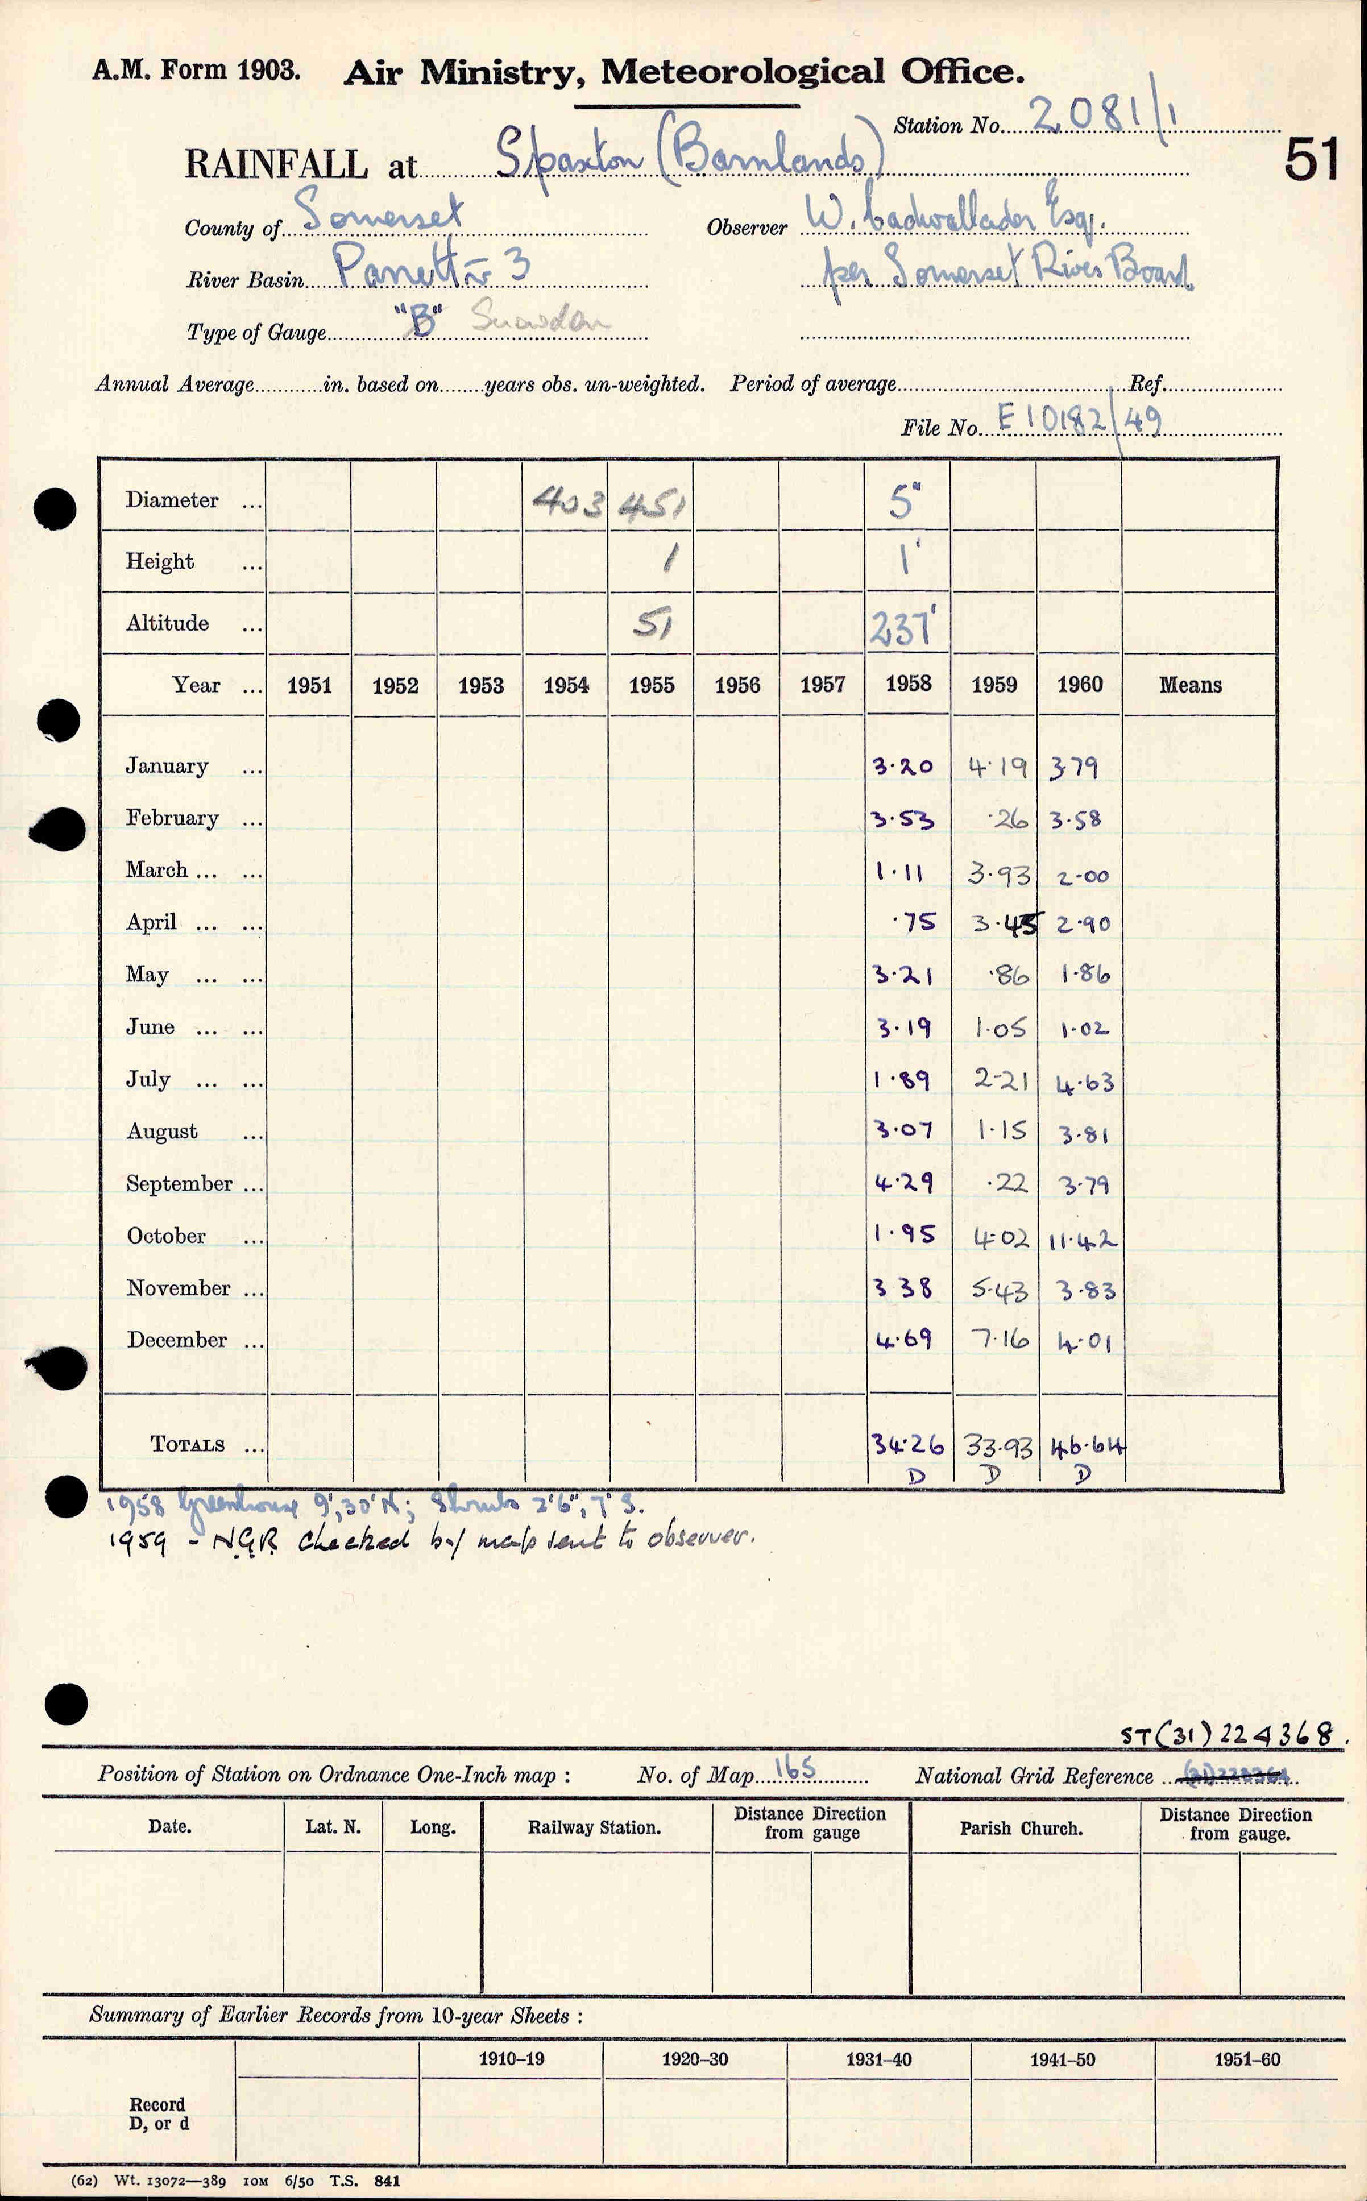 A.M. Form 1903. Air Ministry, Meteorological Office.
Station No. 2081/1
RAINFALL at Spaxton (Barnlands)
51
County of Somerset Observer W. Cadwallader Esq.
River Basin Parrett 3 per Somerset River Board
Type of Gauge "B" Snowdon
Annual Average in. based on years obs. un-weighted. Period of average Ref.
File No. E10182/49
Diameter ... 403 451 5"
Height ... 1 1'
Altitude ... 51 237'
Year ... 1951 1952 1953 1954 1955 1956 1957 1958 1959 1960 Means
January ... 3·20 4·19 379
February ... 3·53 ·26 3·58
March ... ... 1·11 3·93 2·00
April ... ... ·75 3·45 2·90
May ... ... 3·21 ·86 1·86
June ... ... 3·19 1·05 1·02
July ... ... 1·89 2·21 4·63
August ... 3·07 1·15 3·81
September ... 4·29 ·22 3·79
October ... 1·95 4·02 11·42
November ... 3 38 5·43 3·83
December ... 4·69 7·16 4·01
TOTALS ... 34·26 33·93 46·64
D D D
1958 Greenhouse 9', 30' N; Shrubs 2'6", 7' S.
1959 - N.G.R. checked by map sent to observer.
ST (31) 224368.
Position of Station on Ordnance One-Inch map : No. of Map 165 National Grid Reference
Date. Lat. N. Long. Railway Station. Distance Direction from gauge Parish Church. Distance Direction from gauge.
Summary of Earlier Records from 10-year Sheets :
1910–19 1920–30 1931–40 1941–50 1951–60
Record
D, or d
(62) Wt. 13072—389 10M 6/50 T.S. 841